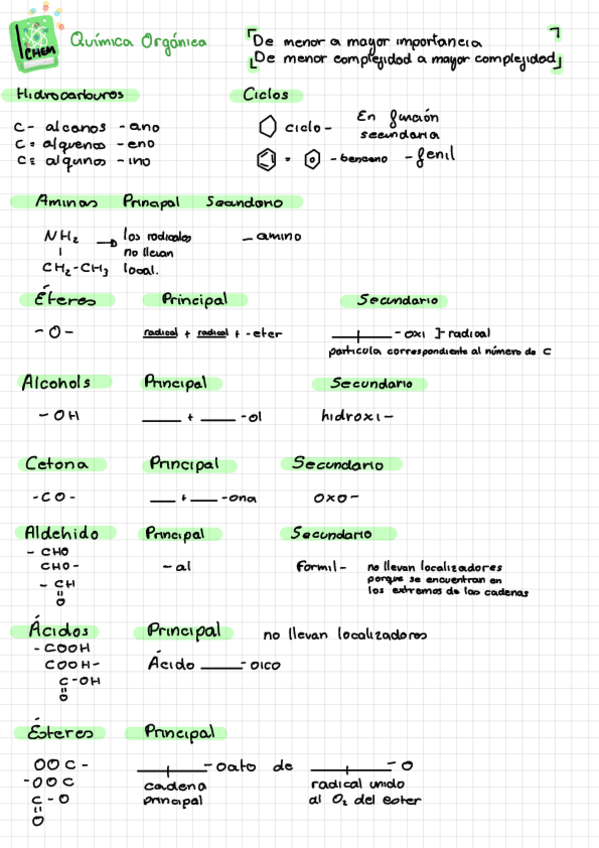 CHEM
Química Orgánica
De menor a mayor importancia
De menor complejidad a mayor complejidad
Hidrocarburos
Ciclos
C- alcanos -ano
C= alquenos -eno
C≡ alquinos -ino
ciclo-
En función
secundaria
= -benceno -fenil
Aminas Prinapal Secundario
NH2
CH2-CH3
→ los radicales
no llevan
local.
-amino
Éteres Principal Secundario
-O-
radical + radical + -eter
-oxi ]-radical
particula correspondiente al número de C
Alcohols Principal Secundario
-OH
___ + ___ -ol
hidroxi-
Cetona Principal Secundario
-CO-
___ + ___ -ona
oxo-
Aldehido Principal Secundario
- CHO
CHO-
- CH
=
O
-al
formil-
no llevan localizadores
porque se encuentran en
los extremos de las cadenas
Ácidos Principal no llevan localizadores
-COOH
COOH-
C-OH
=
O
Ácido ___-oico
Ésteres Principal
OOC-
-OOC
C-O
=
O
___-oato de ___-o
cadena
principal
radical unido
al O2 del ester